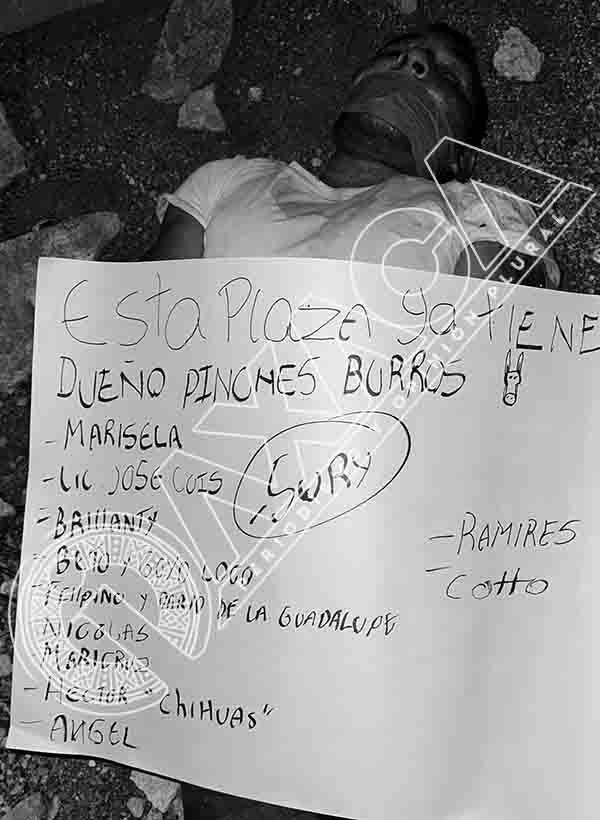 Esta Plaza ya tiene
DUEÑO PINCHES BURROS
- MARISELA
- LIC JOSE LUIS
SURY
- BRILLANTY
- BETO Y GOYO LOCO
- FELIPINO Y DARIO DE LA GUADALUPE
NICOLAS
MARICRUZ
- HECTOR "CHIHUAS"
- ANGEL
- RAMIRES
- COTTO
PERIODISMO Y OPINIÓN PLURAL